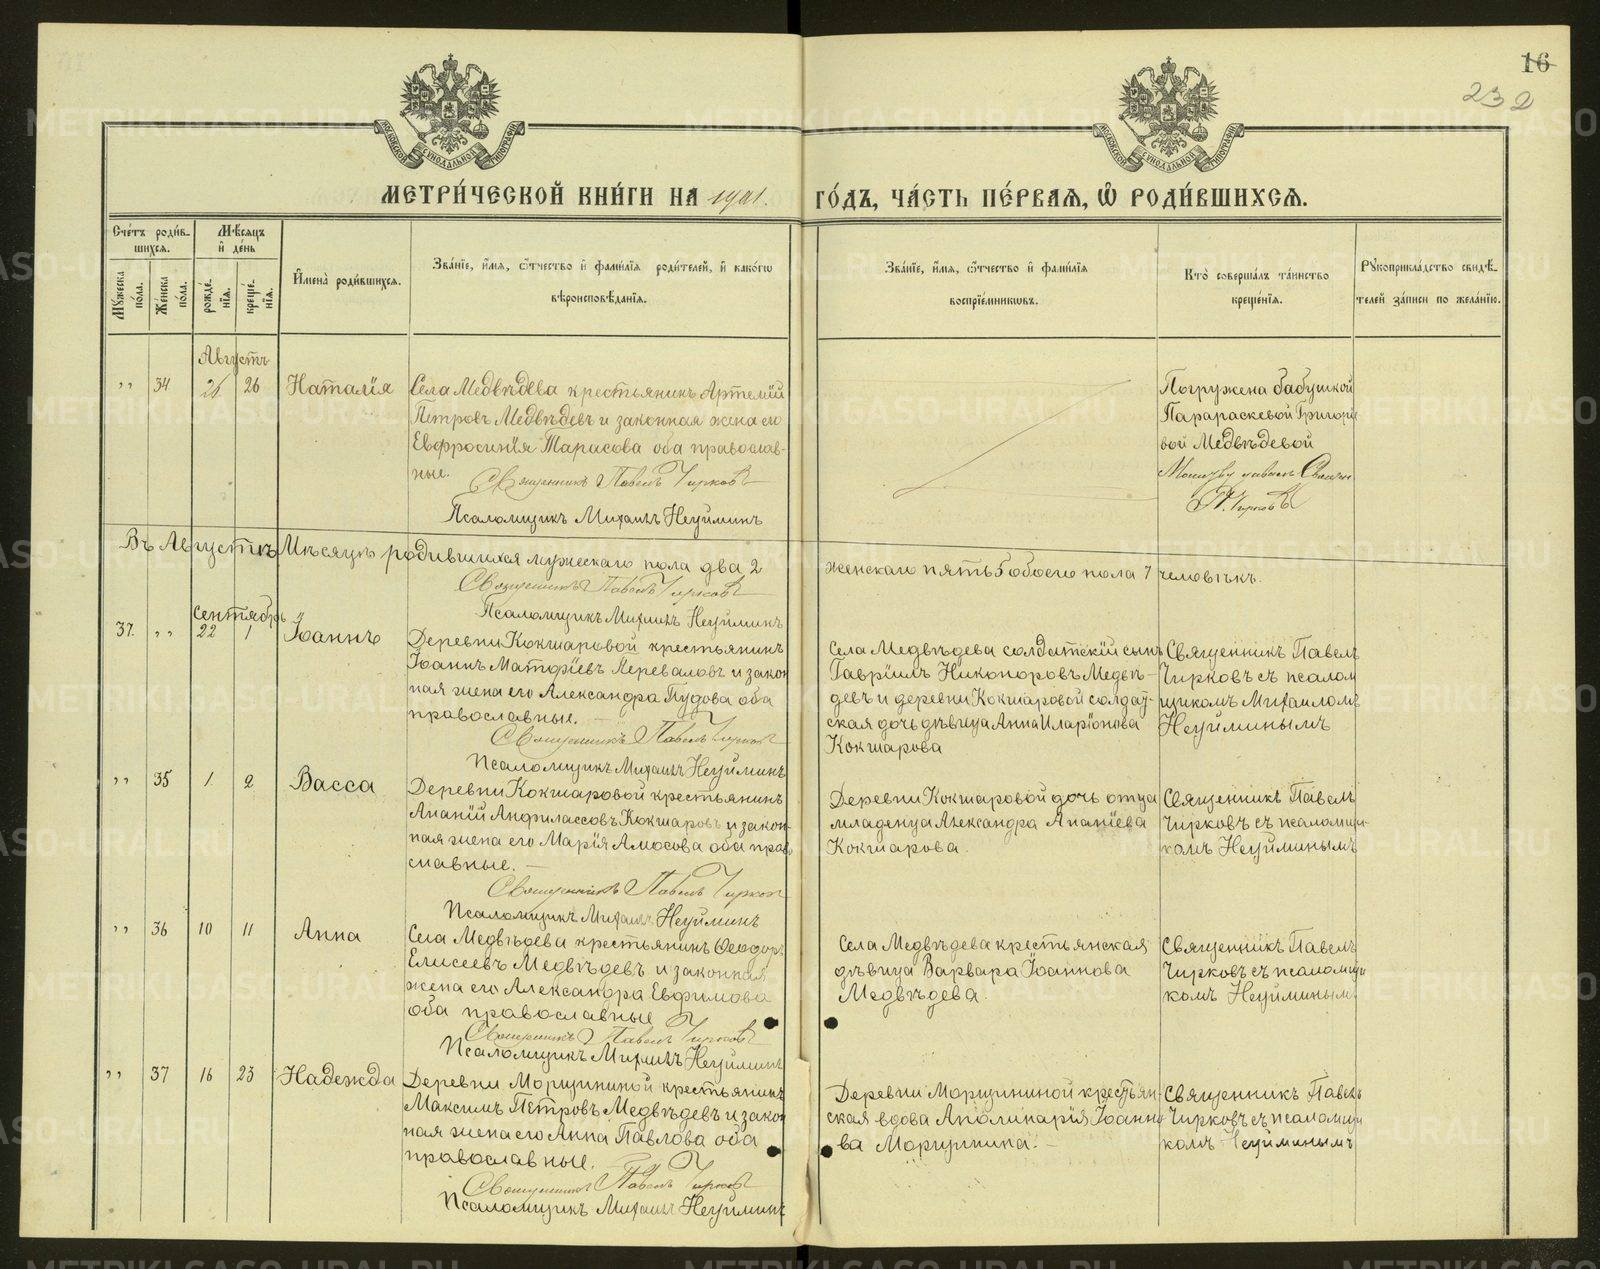 16
232
МОСКОВСКОЙ СѴНОДАЛЬНОЙ ТИПОГРАФІИ
МОСКОВСКОЙ СѴНОДАЛЬНОЙ ТИПОГРАФІИ
МЕТРИ́ЧЕСКОЙ КНИ́ГИ НА 1901. ГО́ДЪ, ЧА́СТЬ ПЕ́РВАѦ, Ѡ҆ РОДИ́ВШИХСѦ.
Сче́тъ роди́в-
шихсѧ.
Мꙋ́жеска
пола.
Же́нска
по́ла.
Мѣ́сѧцъ
и҆ де́нь
рожде-
нїѧ.
креще-
нїѧ.
И҆мена̀ роди́вшихсѧ.
Зва́нїе, и҆́мѧ, ѻ҆́тчество и҆ фами́лїѧ роди́телей, и҆ како́гѡ
вѣроисповѣ́данїѧ.
Зва́нїе, и҆́мѧ, ѻ҆́тчество и҆ фами́лїѧ
воспрїе́мникѡвъ.
Кто̀ соверша́лъ та́инство
креще́нїѧ.
Рꙋкоприкла́дство свидѣ́-
телей за́писи по жела́нїю.
Августъ
" 34 26 Наталія
Села Медвѣдева крестьянинъ Артемій
Петровъ Медвѣдевъ и законная жена его
Евфросинія Тарасова оба православ-
ные.
Священникъ Павелъ Чирковъ
Псаломщикъ Михаилъ Неуйминъ
Погружена бабушкой
Парараскевой Григорье
вой Медвѣдевой
Молитву давалъ Священ
П. Чирковъ
Въ Августѣ Мѣсяцѣ родившихся мужескаго пола два 2
женскаго пять 5 обоего пола 7 человѣкъ.
Священникъ Павелъ Чирковъ
Псаломщикъ Михаилъ Неуйминъ
Сентябрь
37. " 22 1 Іоаннъ
Деревни Кокшаровой крестьянинъ
Іоаннъ Матфіевъ Переваловъ и закон
ная жена его Александра Пудова оба
православные.
Священникъ Павелъ Чирковъ
Псаломщикъ Михаилъ Неуйминъ
Села Медвѣдева солдатскій сынъ
Гавріилъ Никоноровъ Медвѣ-
девъ и деревни Кокшаровой солдат-
ская дочь дѣвица Анна Иларіонова
Кокшарова
Священникъ Павелъ
Чирковъ съ псалом
щикомъ Михаиломъ
Неуйминымъ
" 35 1 2 Васса
Деревни Кокшаровой крестьянинъ
Ананій Анфилассовъ Кокшаровъ и закон-
ная жена его Марія Амосова оба право
славные.
Священникъ Павелъ Чирков
Псаломщикъ Михаилъ Неуйминъ
Деревни Кокшаровой дочь отца
младенца Александра Ананіева
Кокшарова.
Священникъ Павелъ
Чирковъ съ псаломщи-
комъ Неуйминымъ
" 36 10 11 Анна
Села Медвѣдева крестьянинъ Ѳеодоръ
Елисеевъ Медвѣдевъ и законная
жена его Александра Евфимова
оба православные
Священникъ Павелъ Чирковъ
Псаломщикъ Михаилъ Неуйминъ
Села Медвѣдева крестьянская
дѣвица Варвара Іоаннова
Медвѣдева.
Священникъ Павелъ
Чирковъ съ псаломщи
комъ Неуйминымъ
" 37 16 23 Надежда
Деревни Морщининой крестьянинъ
Максимъ Петровъ Медвѣдевъ и закон
ная жена его Анна Павлова оба
православные.
Священникъ Павелъ Чирковъ
Псаломщикъ Михаилъ Неуйминъ
Деревни Морщининой крестьян-
ская вдова Аполинарія Іоанно
ва Морщинина.
Священникъ Павелъ
Чирковъ съ псаломщи
комъ Неуйминымъ
METRIKI.GASO-URAL.RU